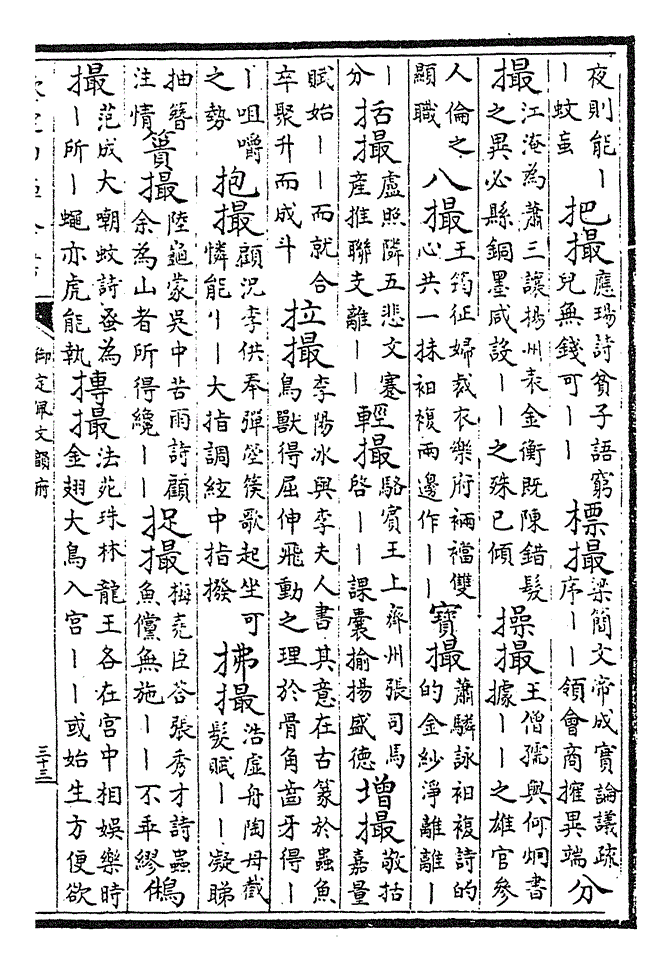 夜則能丨
丨蚊䖟
把撮
應瑒詩貧子語窮
兒無錢可丨丨
標撮
梁簡文帝成實論議疏
序丨丨領會商搉異端
分
撮
江淹為蕭三讓揚州表金衡既陳錯髮
之異必縣銅墨咸設丨丨之殊已傾
操撮
王僧孺與何炯書
據丨丨之雄官參
人倫之
顯職
八撮
王筠征婦裁衣樂府裲襠雙
心共一抹袙複兩邊作丨丨
寶撮
蕭驎詠袙複詩的
的金紗淨離離丨
丨
分
括撮
盧照隣五悲文蹇
産推聯支離丨丨
輕撮
駱賓王上齊州張司馬
啓丨丨課囊揄揚盛德
增撮
敬括
嘉量
賦始丨丨而就合
卒聚升而成斗
拉撮
李陽冰與李夫人書其意在古篆於蟲魚
鳥獸得屈伸飛動之理於骨角齒牙得丨
丨咀嚼
之勢
抱撮
顧況李供奉彈箜篌歌起坐可
憐能丨丨大指調絃中指撥
拂撮
浩虛舟陶母截
髮賦丨丨凝睇
抽簪
注情
簣撮
陸龜蒙吳中苦雨詩顧
余為山者所得纔丨丨
捉撮
梅堯臣荅張秀才詩蟲
魚儻無施丨丨不乖繆
鵂
撮
范成大嘲蚊詩蚤為
丨所丨蠅亦虎能執
摶撮
法苑珠林龍王各在宮中相娛樂時
金翅大鳥入宮丨丨或始生方便欲
御定佩文韻府
三十三